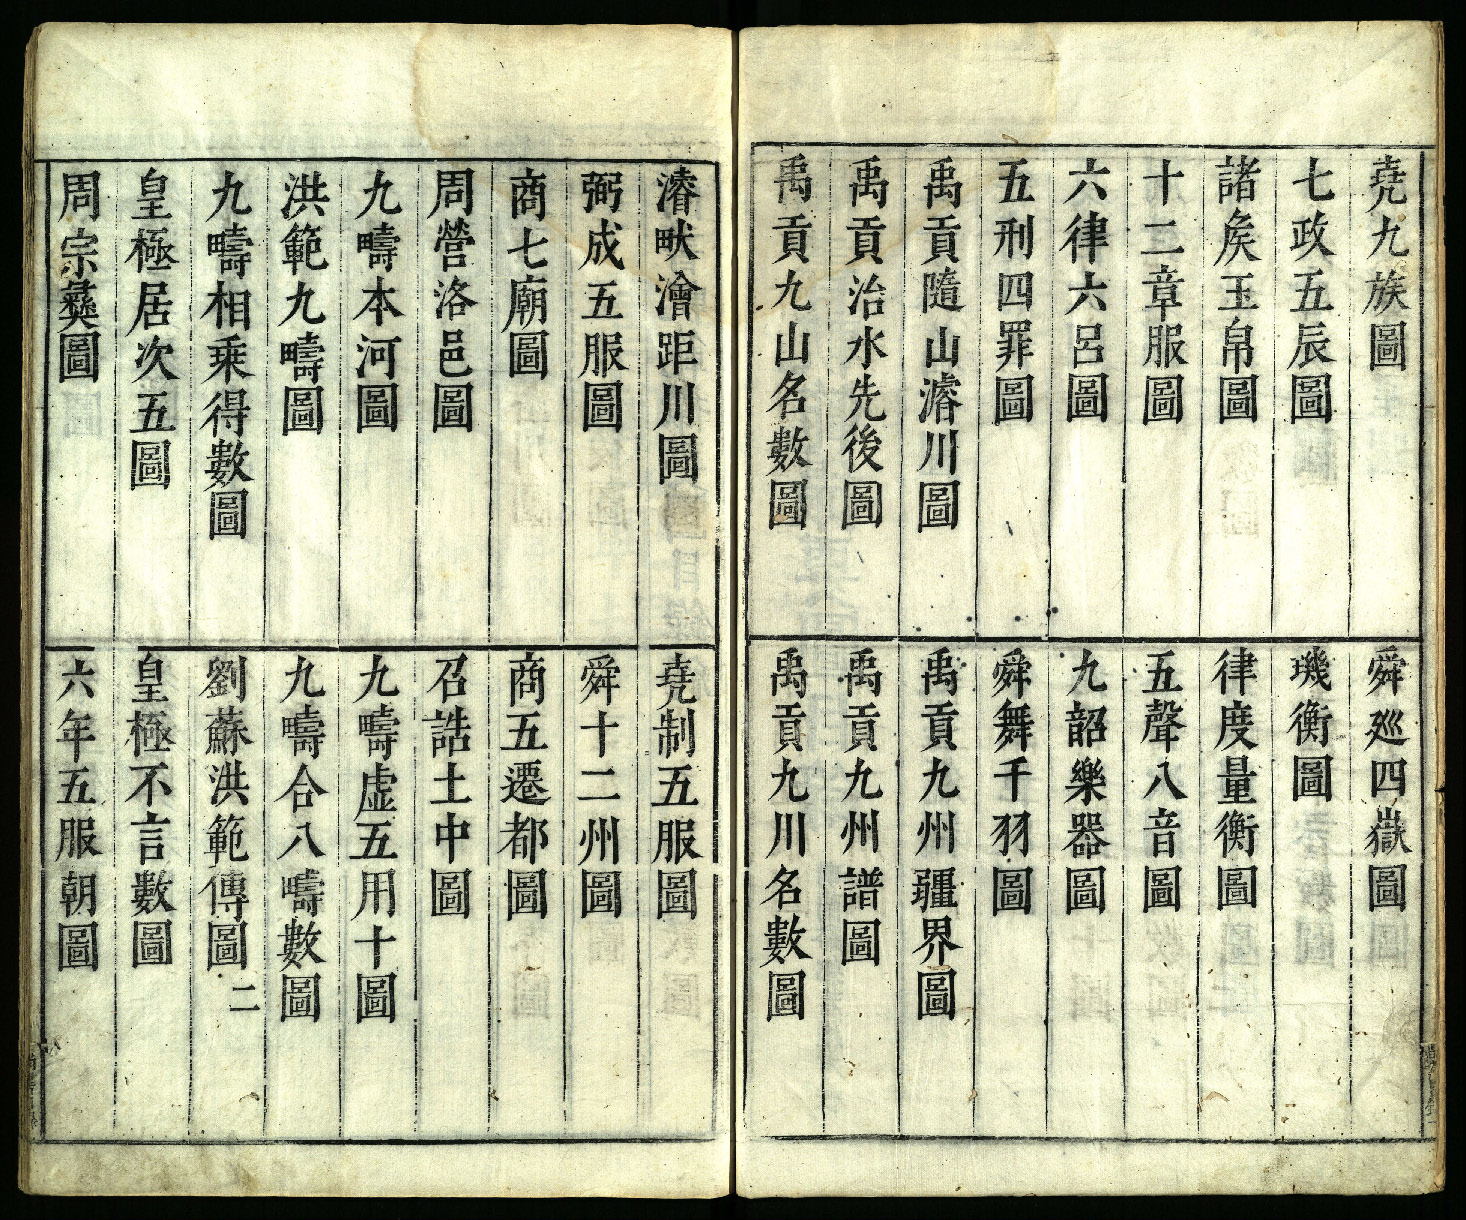 堯九族圖
舜廵四嶽圖
七政五辰圖
璣衡圖
諸矦玉帛圖
律度量衡圖
十二章服圖
五聲八音圖
六律六呂圖
九韶樂器圖
五刑四罪圖
舜舞干羽圖
禹貢隨山濬川圖
禹貢九州疆界圖
禹貢治水先後圖
禹貢九州譜圖
禹貢九山名數圖
禹貢九川名數圖
濬畎澮距川圖
堯制五服圖
弼成五服圖
舜十二州圖
商七廟圖
商五遷都圖
周營洛邑圖
召誥土中圖
九疇本河圖
九疇虛五用十圖
洪範九疇圖
九疇合八疇數圖
九疇相乗得數圖
劉蘇洪範傳圖二
皇極居次五圖
皇極不言數圖
周宗彝圖
六年五服朝圖